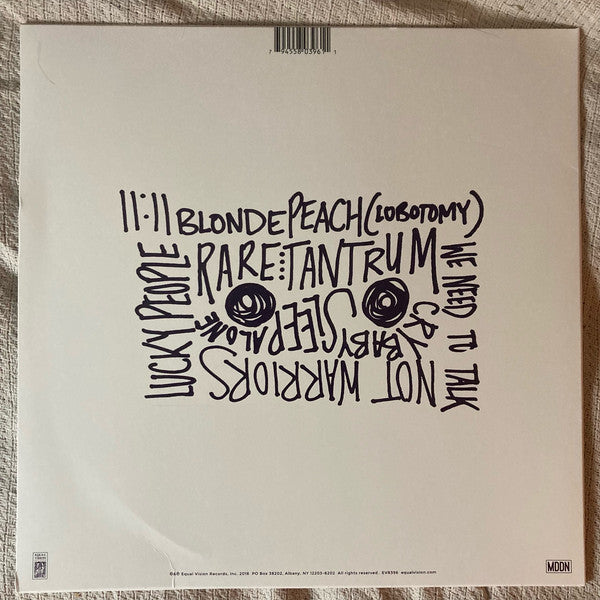 7 94558 03961 1
11:11 BLONDE PEACH (LOBOTOMY)
RARE TANTRUM
WE NEED TO TALK
NOT WARRIORS
LUCKY PEOPLE
CRYBABY
SLEEP ALONE
©℗ Equal Vision Records, Inc. 2018 PO Box 38202, Albany, NY 12203-8202 All rights reserved. EVR396 equalvision.com
MDDN